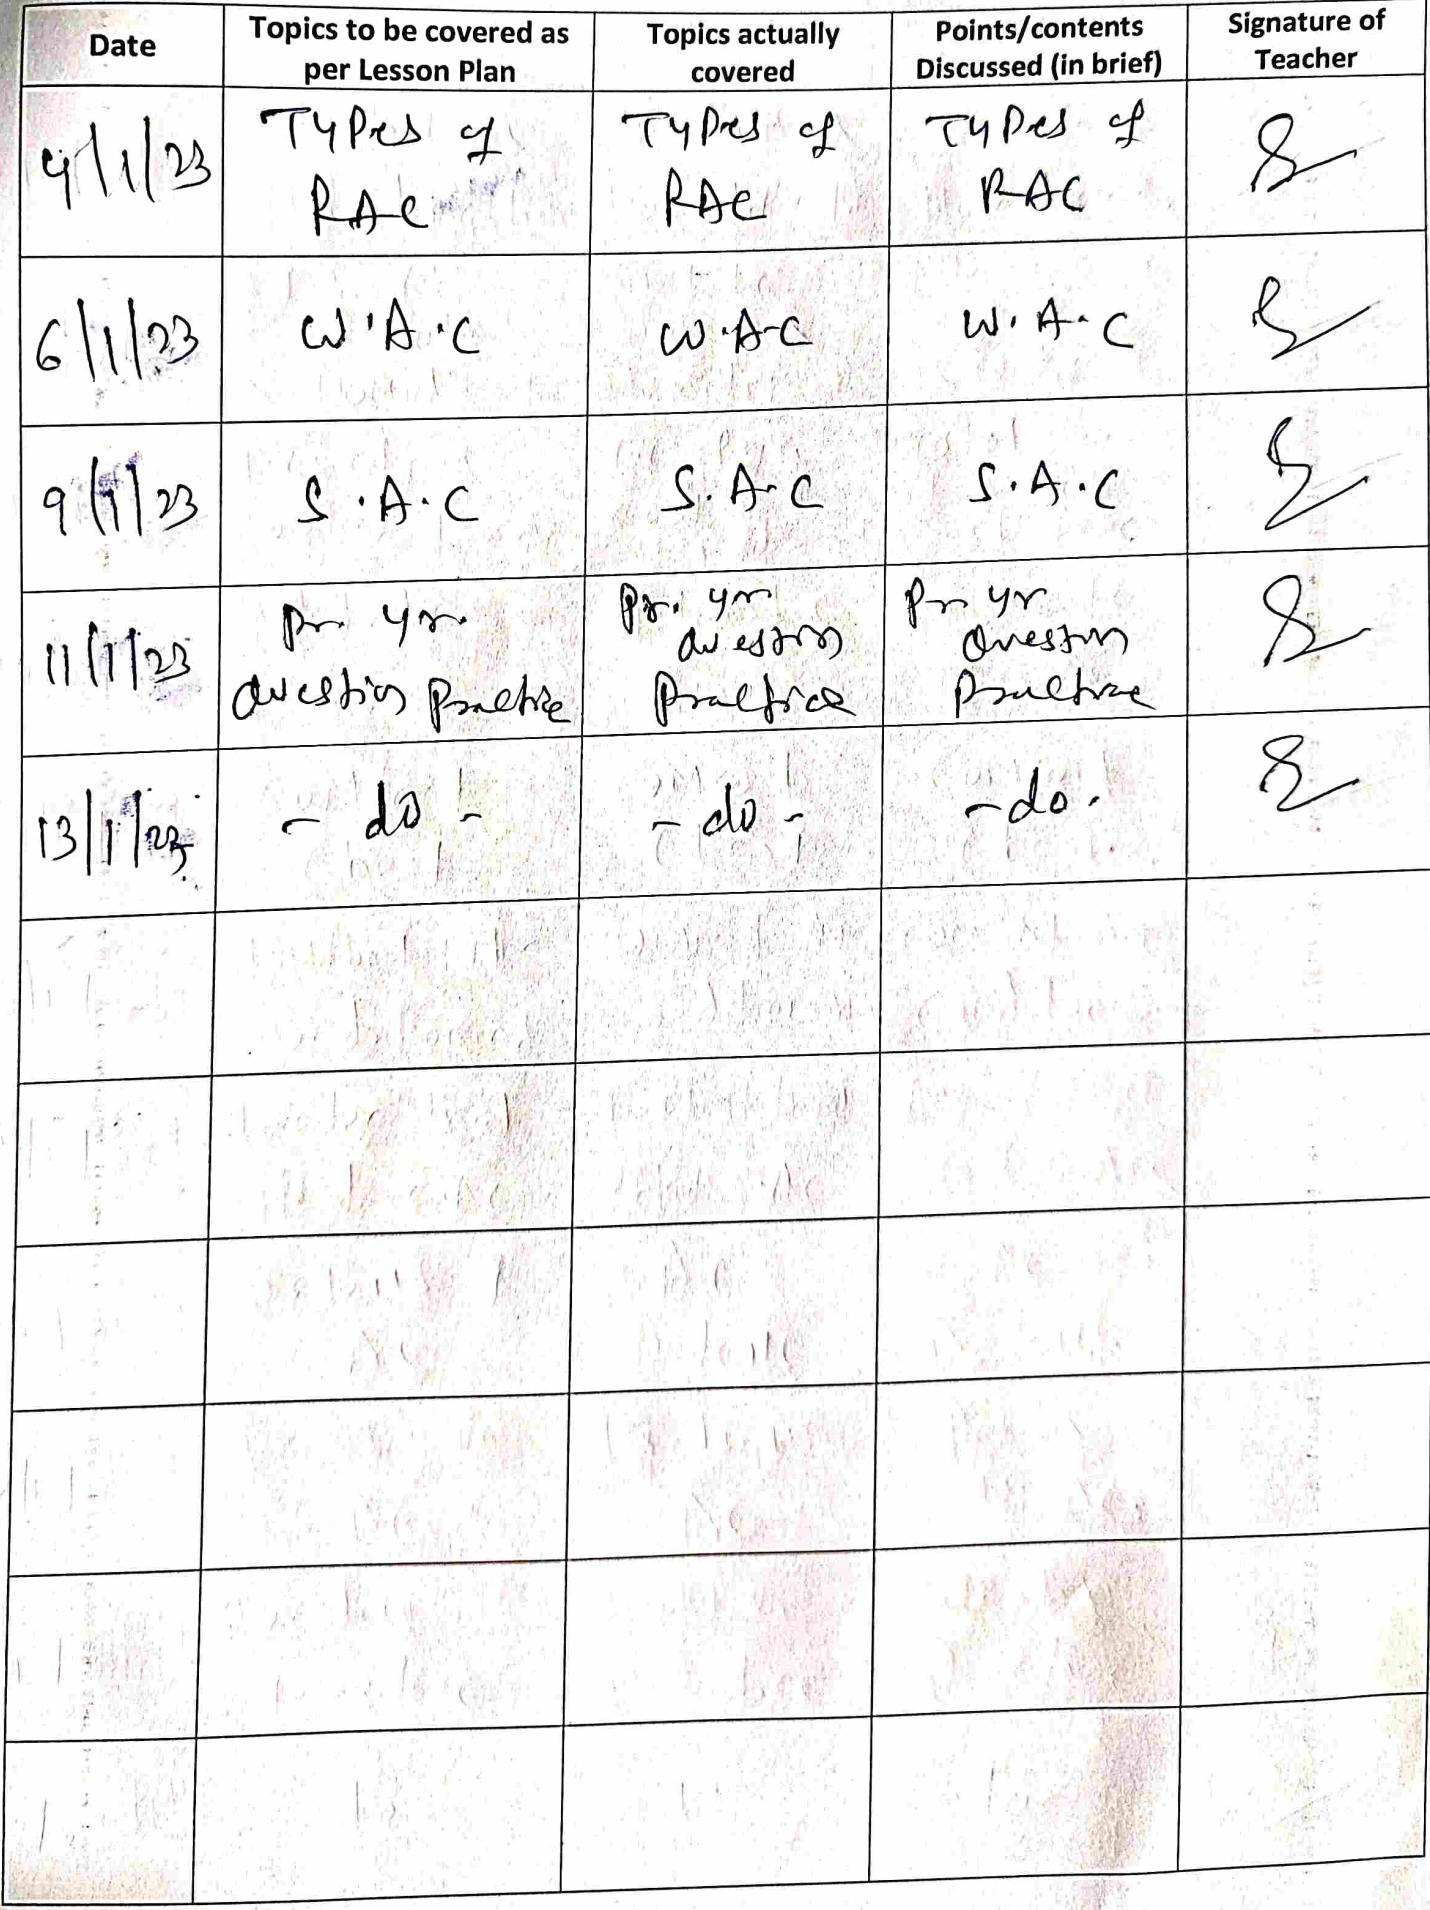 Date
Topics to be covered as
per Lesson Plan
Topics actually
covered
Points/contents
Discussed (in brief)
Signature of
Teacher
4/1/23
Types of
RAC
Types of
RAC
Types of
RAC
6/1/23
W.A.C
W.A.C
W.A.C
9/1/23
S.A.C
S.A.C
S.A.C
11/1/23
Pr. yr.
Question Practice
Pr. yr
Question
Practice
Pr yr
Question
Practice
13/1/23
- do -
- do -
- do -